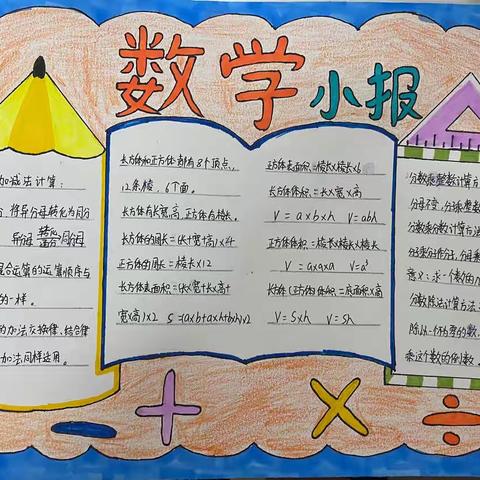 数学小报
加减法计算:
将异分母转化为同分
异分母 转化 同分母
混合运算的运算顺序与
的一样。
的加法交换律、结合律
加法同样适用。
长方体和正方体都有8个顶点,
12条棱,6个面。
长方体有长宽高,正方体有棱长。
长方体的周长=(长+宽+高)×4
正方体的周长=棱长×12
长方体表面积=(长×宽+长×高+
宽×高)×2 S=(a×b+a×h+b×h)×2
正方体表面积=棱长×棱长×6
长方体体积=长×宽×高
V=a×b×h V=abh
正方体体积=棱长×棱长×棱长
V=a×a×a V=a³
长方体(正方体)体积=底面积×高
V=S×h V=Sh
分数乘整数计算方
分母不变,分子乘整数
分数乘分数计算方法
分子乘分子作分子,分母乘
意义:求一个数的
分数除法计算方法:
除以一个不为零的数,
乘这个数的倒数。
- + × ÷